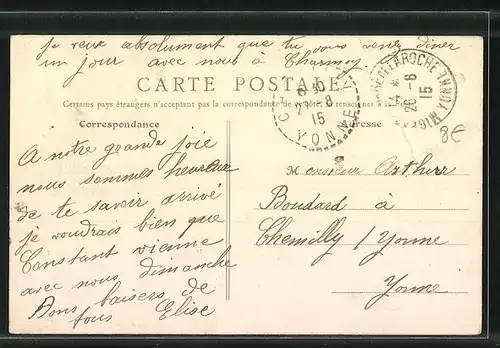 je veux absolument que tu vous venez dîner
un jour avec nous à Charmoy
CARTE POSTALE
Certains pays étrangers n'acceptent pas la correspondance de ce côté, se renseigner à la
Correspondance
Adresse
A notre grande joie
nous sommes heureux
de te savoir arrivé
je voudrais bien que
Constant vienne
avec nous dimanche
Bons baisers de
tous Elise
Monsieur Arthur
Boudard à
Chemilly / Yonne
Yonne
15
YONNE
LAROCHE
YONNE
26-8
15
8€